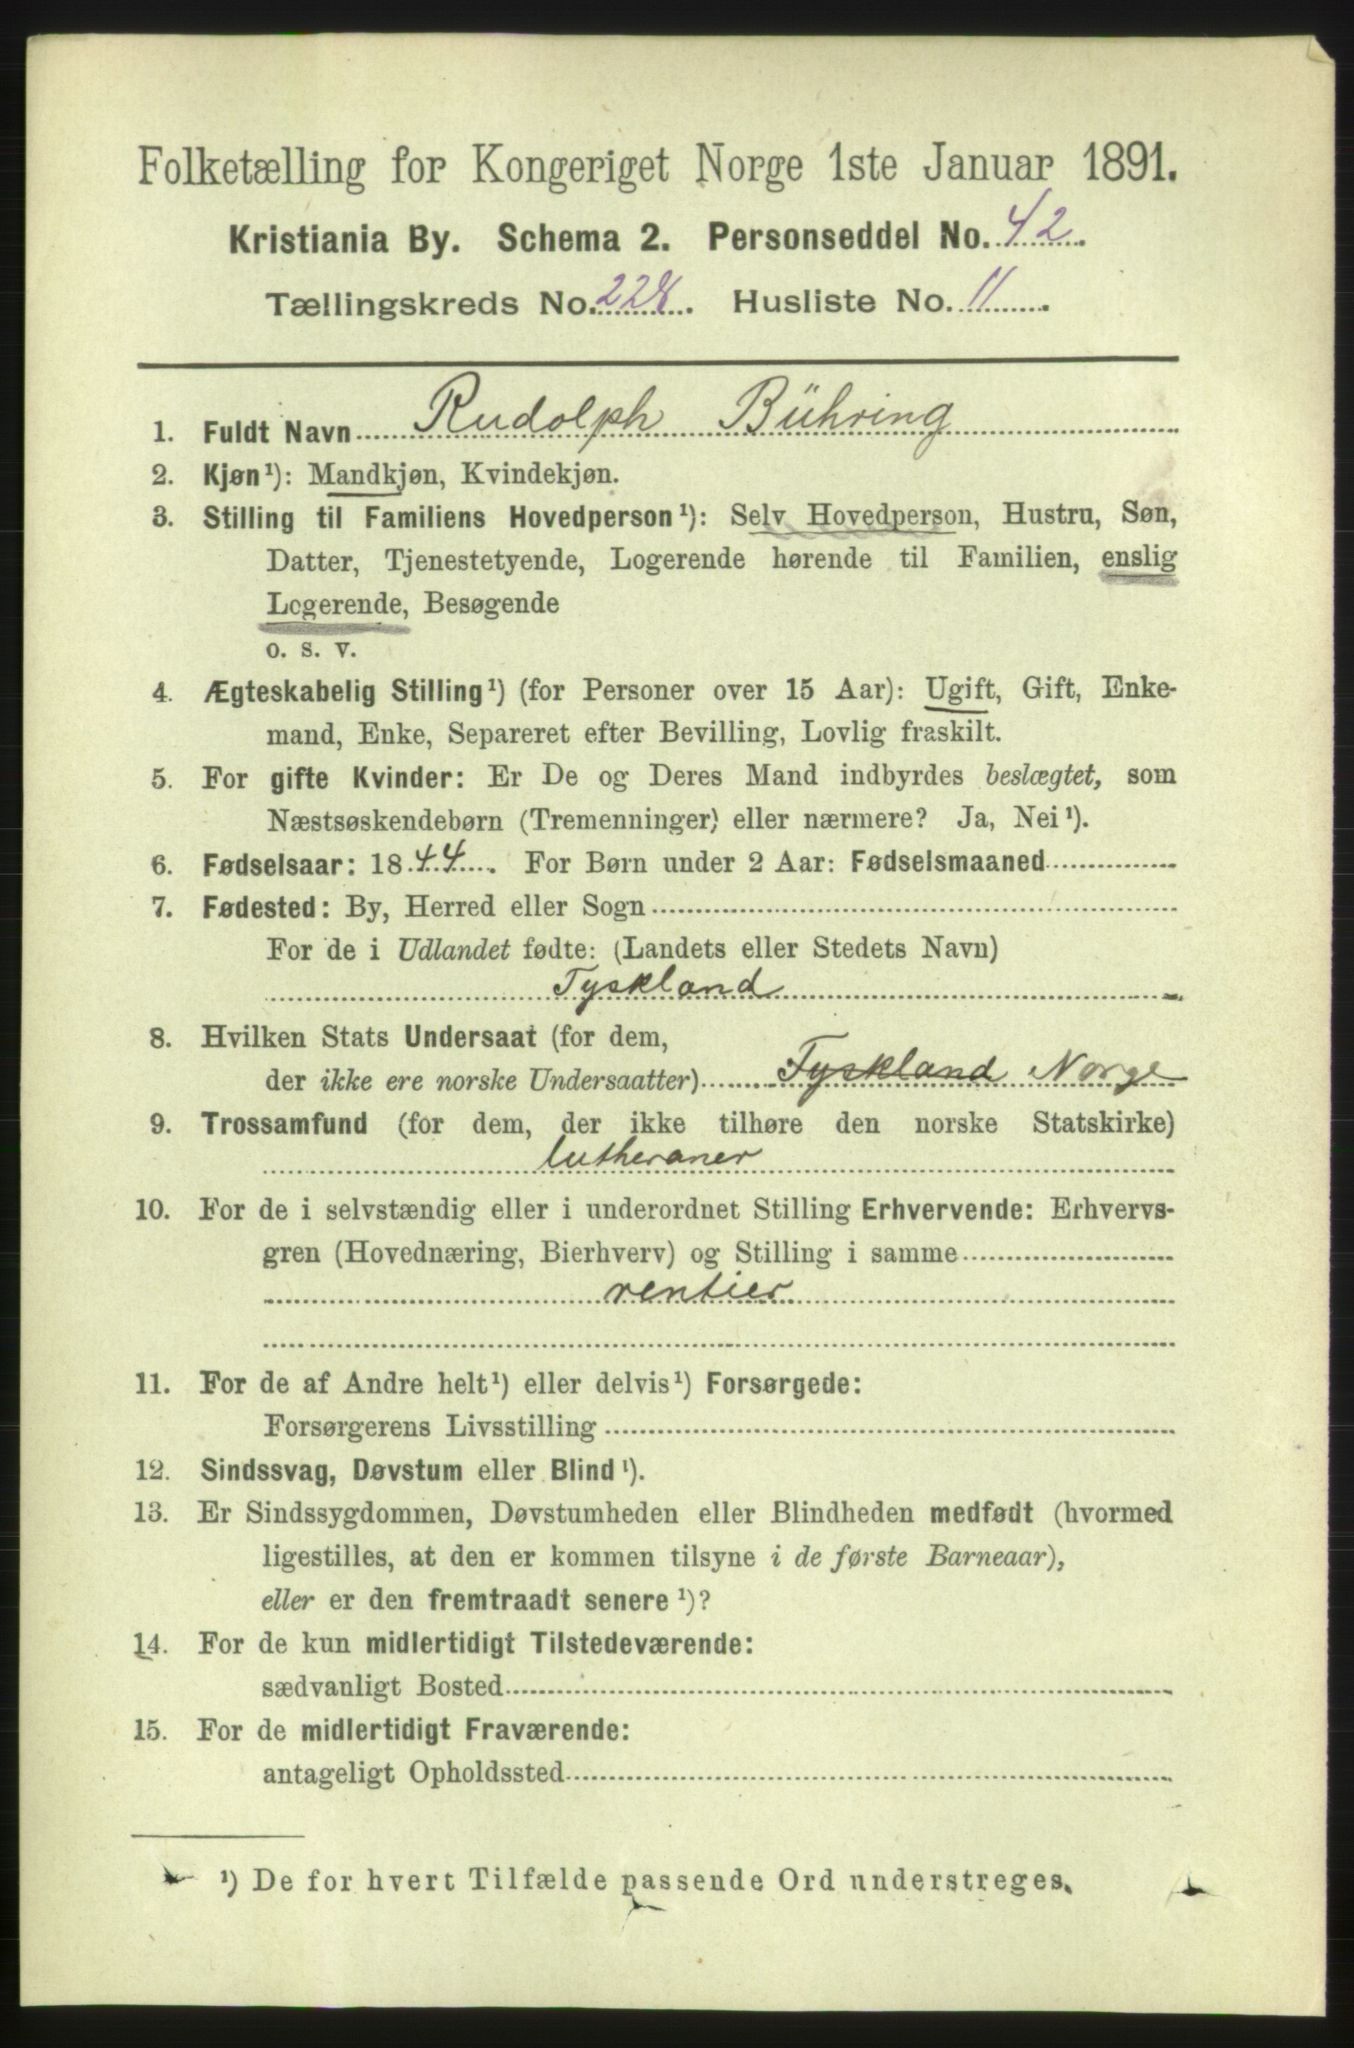 Folketælling for Kongeriget Norge 1ste Januar 1891.
Kristiania By. Schema 2. Personseddel No. 42.
Tællingskreds No. 228. Husliste No. 11.
1. Fuldt Navn Rudolph Bühring
2. Kjøn¹): Mandkjøn, Kvindekjøn.
3. Stilling til Familiens Hovedperson¹): Selv Hovedperson, Hustru, Søn,
Datter, Tjenestetyende, Logerende hørende til Familien, enslig
Logerende, Besøgende
o. s. v.
4. Ægteskabelig Stilling¹) (for Personer over 15 Aar): Ugift, Gift, Enke-
mand, Enke, Separeret efter Bevilling, Lovlig fraskilt.
5. For gifte Kvinder: Er De og Deres Mand indbyrdes beslægtet, som
Næstsøskendebørn (Tremenninger) eller nærmere? Ja, Nei¹).
6. Fødselsaar: 1844. For Børn under 2 Aar: Fødselsmaaned
7. Fødested: By, Herred eller Sogn
For de i Udlandet fødte: (Landets eller Stedets Navn)
Tyskland
8. Hvilken Stats Undersaat (for dem,
der ikke ere norske Undersaatter) Tyskland Norge
9. Trossamfund (for dem, der ikke tilhøre den norske Statskirke)
lutheraner
10. For de i selvstændig eller i underordnet Stilling Erhvervende: Erhvervs-
gren (Hovednæring, Bierhverv) og Stilling i samme
rentier
11. For de af Andre helt¹) eller delvis¹) Forsørgede:
Forsørgerens Livsstilling
12. Sindssvag, Døvstum eller Blind¹).
13. Er Sindssygdommen, Døvstumheden eller Blindheden medfødt (hvormed
ligestilles, at den er kommen tilsyne i de første Barneaar),
eller er den fremtraadt senere¹)?
14. For de kun midlertidigt Tilstedeværende:
sædvanligt Bosted
15. For de midlertidigt Fraværende:
antageligt Opholdssted
¹) De for hvert Tilfælde passende Ord understreges.